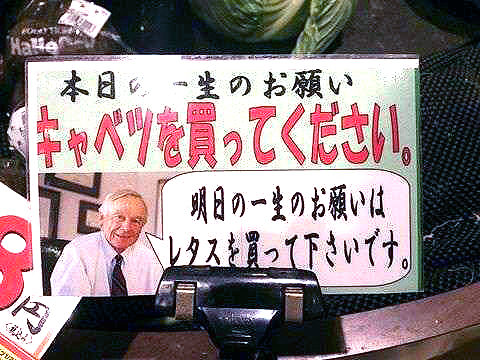 本日の一生のお願い
キャベツを買ってください。
明日の一生のお願いは
レタスを買って下さいです。
8
円